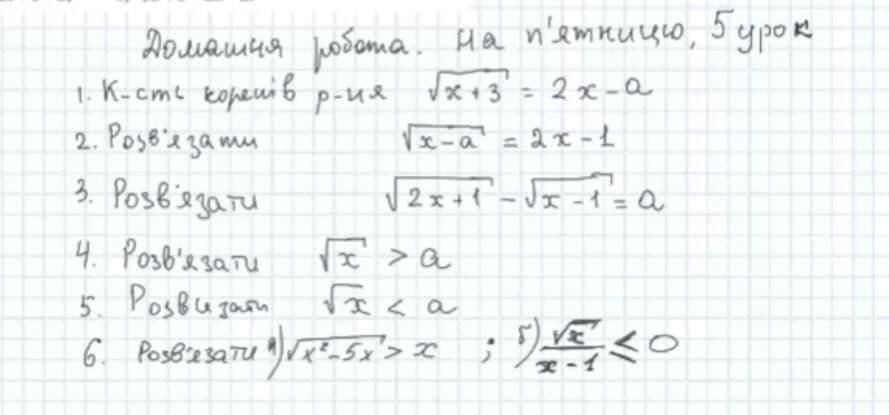 Домашня робота. На п'ятницю, 5 урок
1. К-сть коренів р-ня √(x+3) = 2x-a
2. Розв'язати √(x-a) = 2x-1
3. Розв'язати √(2x+1) - √(x-1) = a
4. Розв'язати √x > a
5. Розвизати √x < a
6. Розв'язати а) √(x²-5x) > x ; б) √x/(x-1) ≤ 0